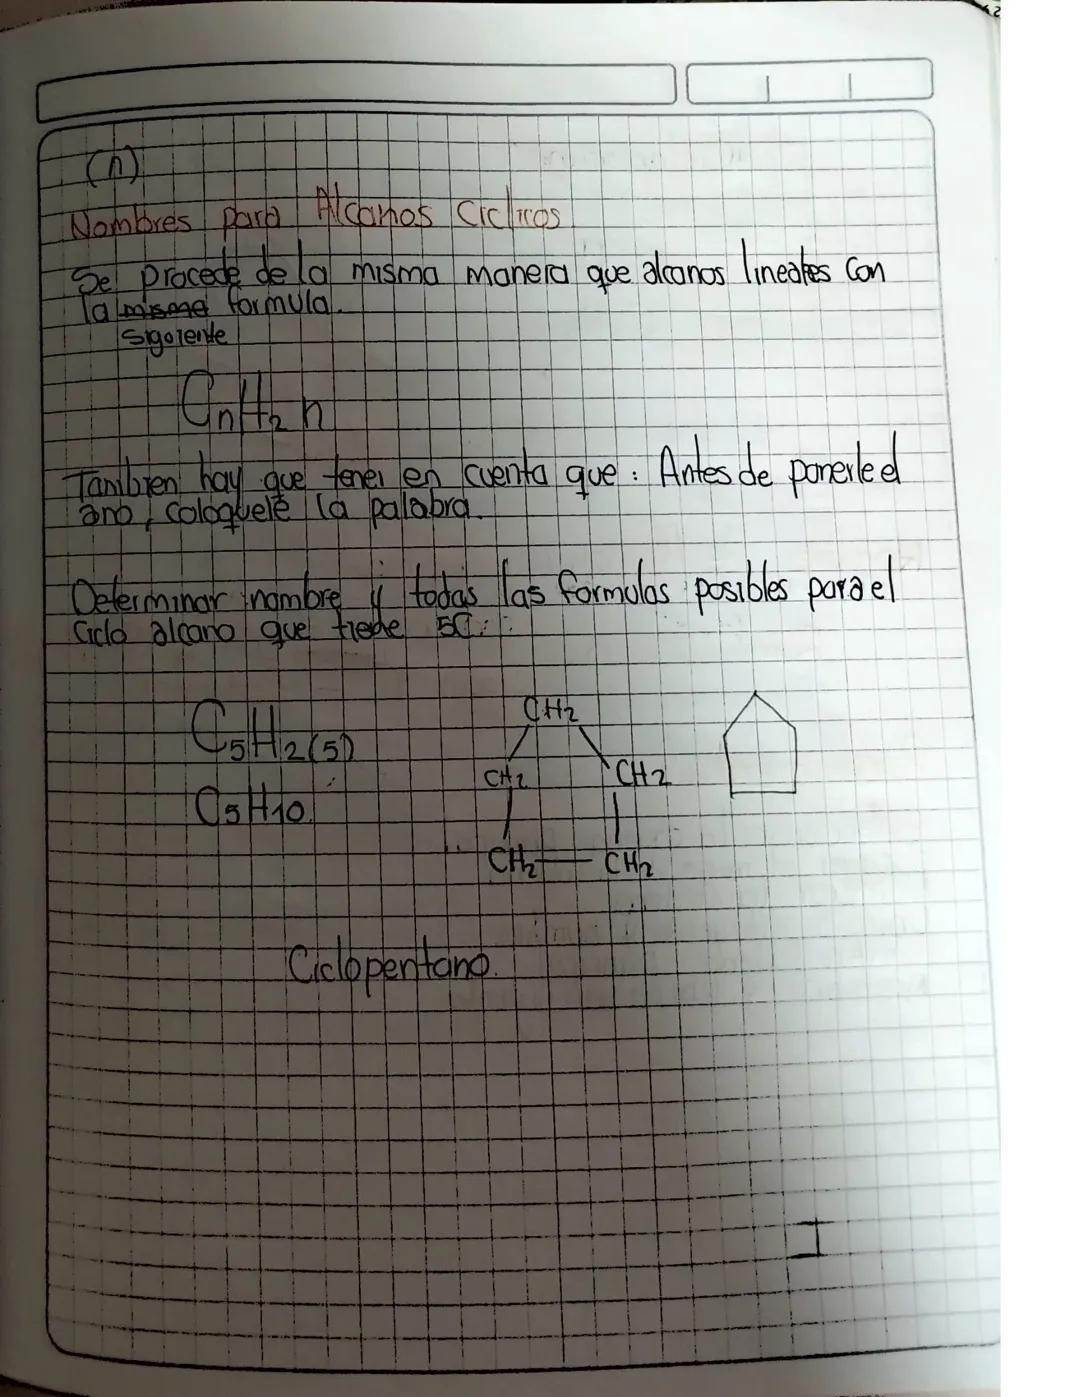 (n)
Nombres para Alcanos Ciclicos
Se procede de la misma manera que alcanos lineales con
la misma formula.
sigoiente
CnH2n
Tambien hay que tener en cuenta que: Antes de ponerle el
ano, coloquele la palabra.
Determinar nombre y todas las formulas posibles para el
Ciclo alcano que tiene 5C:
CH2
C5H2(5)
CH2 CH2
C5H10.
CH2 CH2
Ciclopentano.